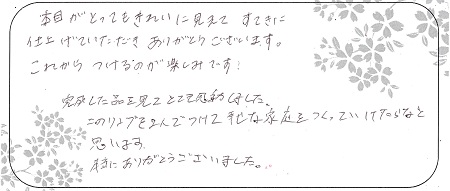 木目がとってもきれいに見えて すてきに
仕上げていただき ありがとうございます。
これから つけるのが楽しみです!
完成した品を見てとても感動しました。
このリングを2人でつけて 幸せな家庭をつくっていけたらなと
思います。
本当にありがとうございました。